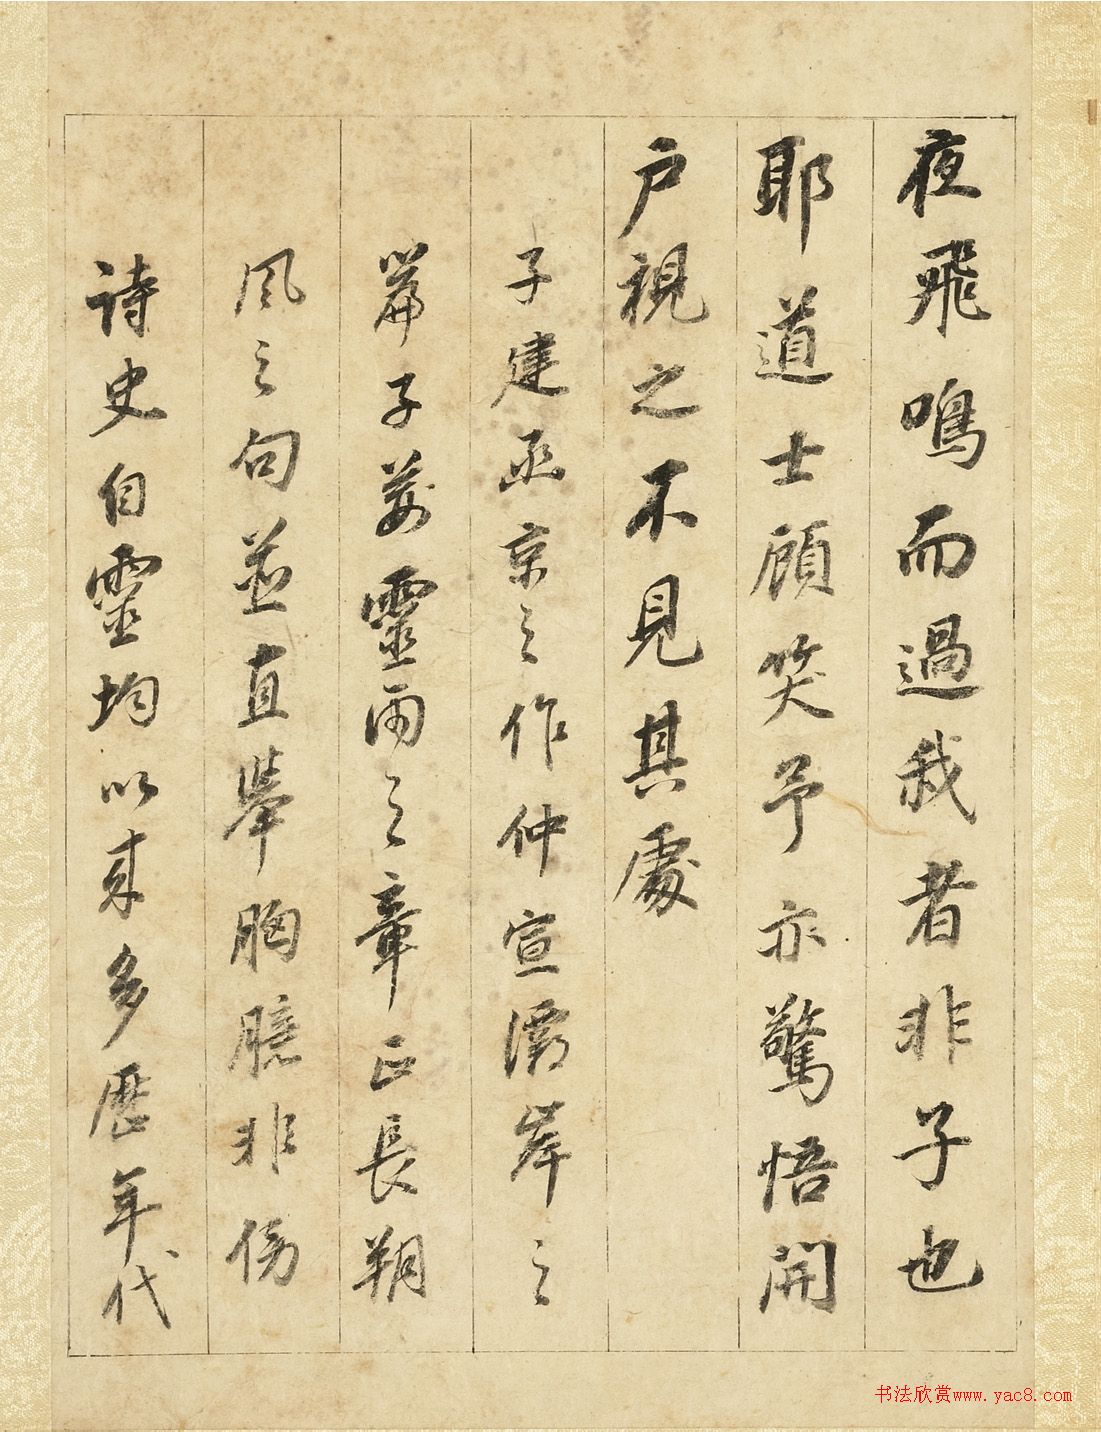 夜飛鳴而過我者非子也
耶道士顧笑予亦驚悟開
戶視之不見其處
子建函京之作仲宣灞岸之
篇子荊零雨之章正長朔
風之句並直舉胸臆非傍
詩史自靈均以來多歷年代
书法欣赏www.yac8.com